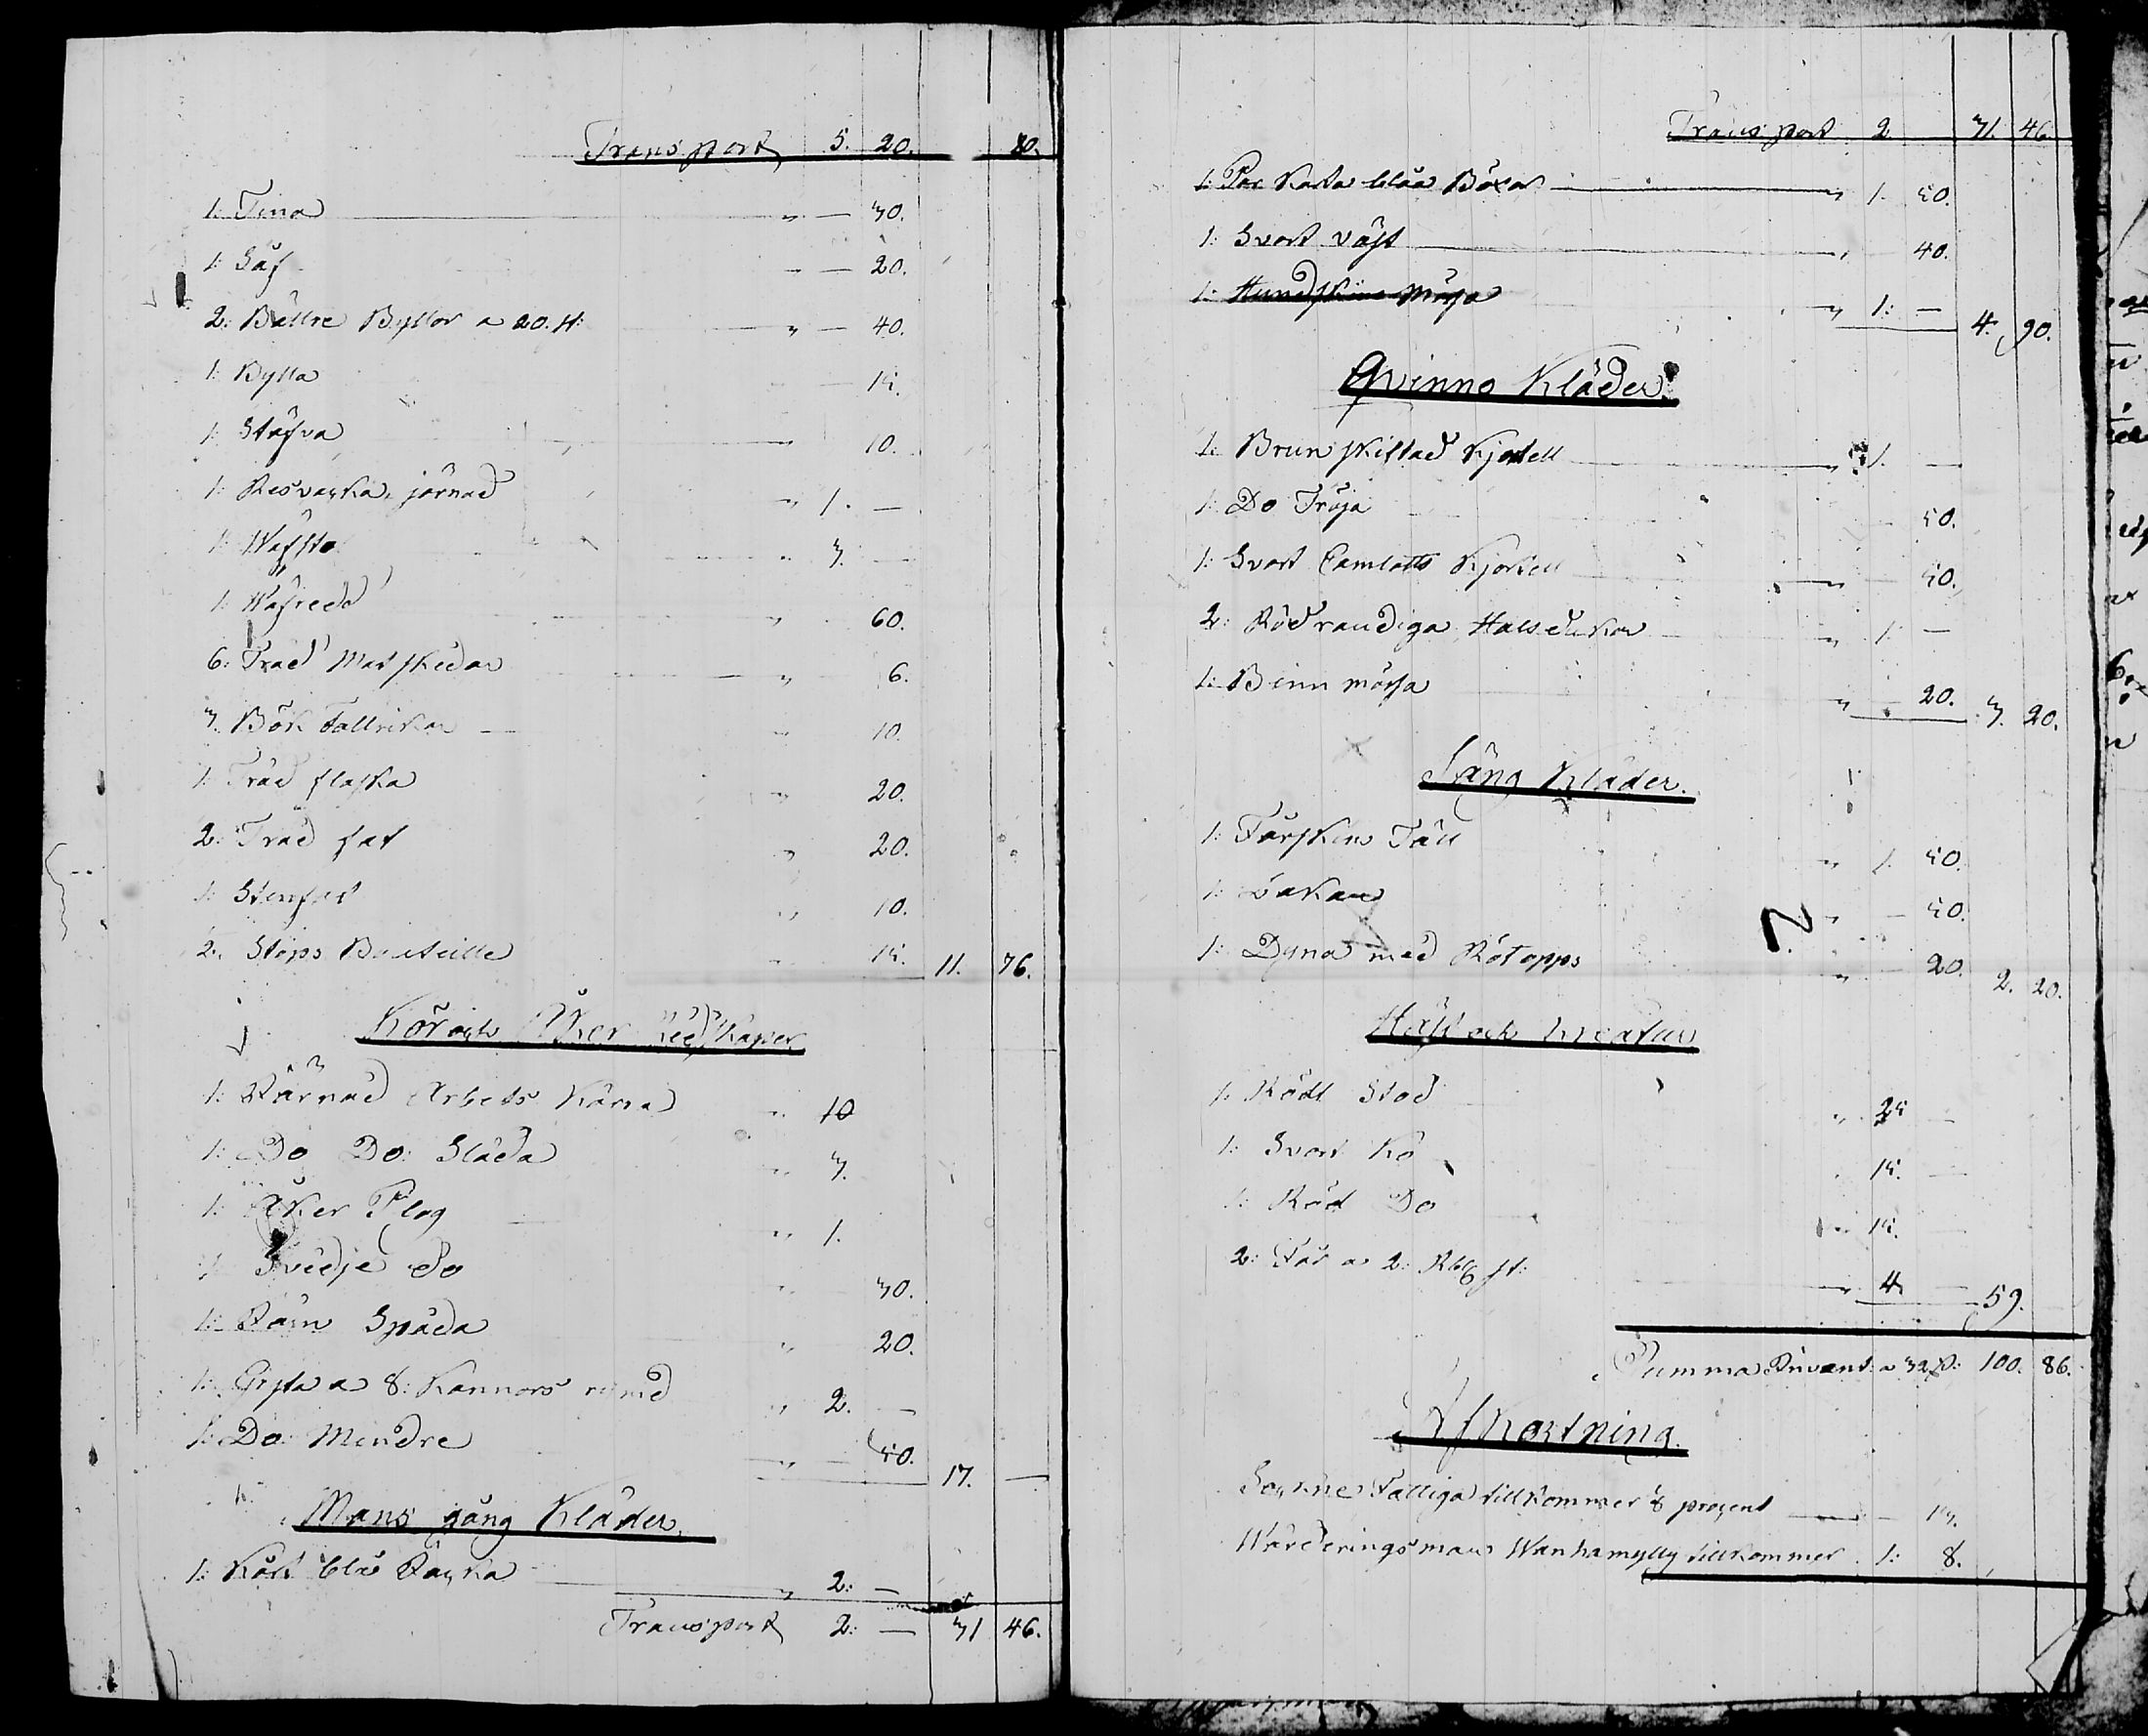 Transport 5. 20. 20.
1: Tina " — 30.
1: Såf — 20.
2: Bättre Byttor a 20. st: " — 40.
1: Bytta — 15.
1: Stäfva " 10.
1: Resvagka, järnad " 1. —
1: Wäfsto " 3. —
1: Wäfredd " 60.
6: Träd Matskedar " 6.
3. Bök Tallrikar — " 10.
1: Träd flaska " 20.
2: Träd fat " 20.
1: Stenfat " 10.
2. Stops Bouteille 15. 11. 76.
Kör och Åker Redskaper
1: Järnad Arbets Kärra " 10
1: Do Do: Släda " 3.
1: Åker Plog " 1.
1 Svedje do " 30.
1: Järn Spada " 20.
1: Gryta a 8: Kannors rymd " 2. —
1: Do: Mindre " — 50. 17. —
Mans gång Kläder.
1: Kort blå Jacka " 2: —
Transport 2: — 31 46.
Transport 2 31. 46.
1: Par Korta blåa Böxor " 1. 50.
1: Svart väst " 40.
1: Hundskins Mössa " 1: — 4. 90.
Qvinno Kläder.
1: Brun skiftad Kjortell " 1. —
1: Do Tröja 50.
1: Svart Camlotts Kjortell " 50.
2: Rödrandiga Halsdukar " 1. —
1: Binn mössa " 20. 3. 20.
Säng Kläder.
1: Fårskins Fäll " 1. 50.
1: Lakan " — 50.
1: Dyna med Rötapps " 20. 2. 20.
Häst och Kreatur
1: Rödt Stod " 25 —
1: Svart Ko 15. —
1: Röd Do " 15. —
2: Får a 2: Rbl st: " 4 — 59.
Summa Invent: a 32 p: 100. 86.
Afkortning.
Sockne Fattiga tillkommer 1/8 procent — 13.
Wärderingsman Wanhamylly tillkommer. 1: 8.